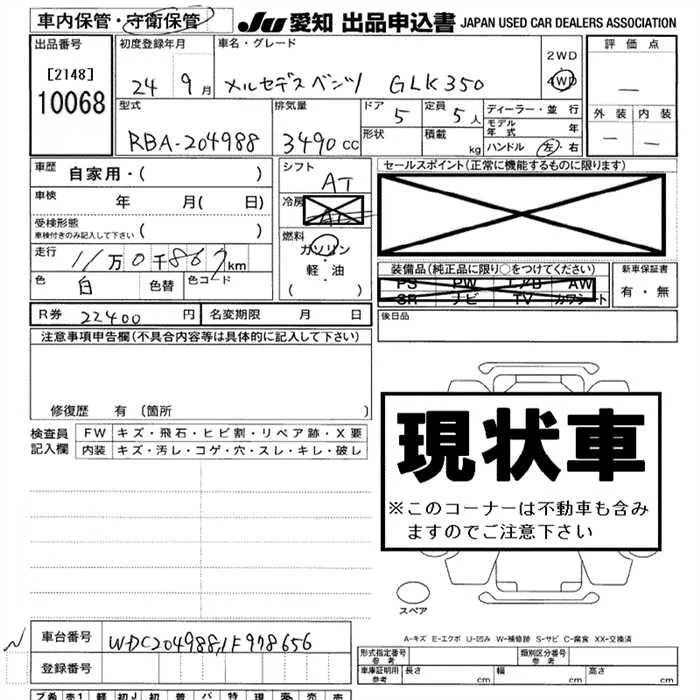 車内保管・守衛保管 JU 愛知 出品申込書 JAPAN USED CAR DEALERS ASSOCIATION
出品番号 初度登録年月 車名・グレード 評価点
[2148] 24 9月 メルセデスベンツ GLK350 2WD
10068 4WD
型式 排気量 ドア 定員 ディーラー・並行 外装 内装
RBA-204988 3490cc 5 5人 モデル年式 年
形状 積載 kg ハンドル 左・右
車歴 自家用・( ) シフト AT セールスポイント(正常に機能するものに限ります)
車検 年 月( 日) 冷房
受検形態
車検付きのみ記入して下さい ( ) 燃料
走行 11万0千867km ガソリン
軽・油
( )
装備品(純正品に限り○をつけてください) 新車保証書
色 白 色替 色コード PS PW エアB AW 有・無
SR ナビ TV カワシート
R券 22400円 名変期限 月 日 後日品
注意事項申告欄(不具合内容等は具体的に記入して下さい)
修復歴 有 (箇所 )
検査員記入欄 FW キズ・飛石・ヒビ割・リペア跡・X要
内装 キズ・汚レ・コゲ・穴・スレ・キレ・破レ
現状車
※このコーナーは不動車も含み
ますのでご注意下さい
スペア
A-キズ E-エクボ U-凹み W-補修跡 S-サビ C-腐食 XX-交換済
車台番号 WDC2049881F978656
登録番号
形式指定番号 参考 類別区分番号 参考
車庫証明用 参考 長さ cm 幅 cm 高さ cm